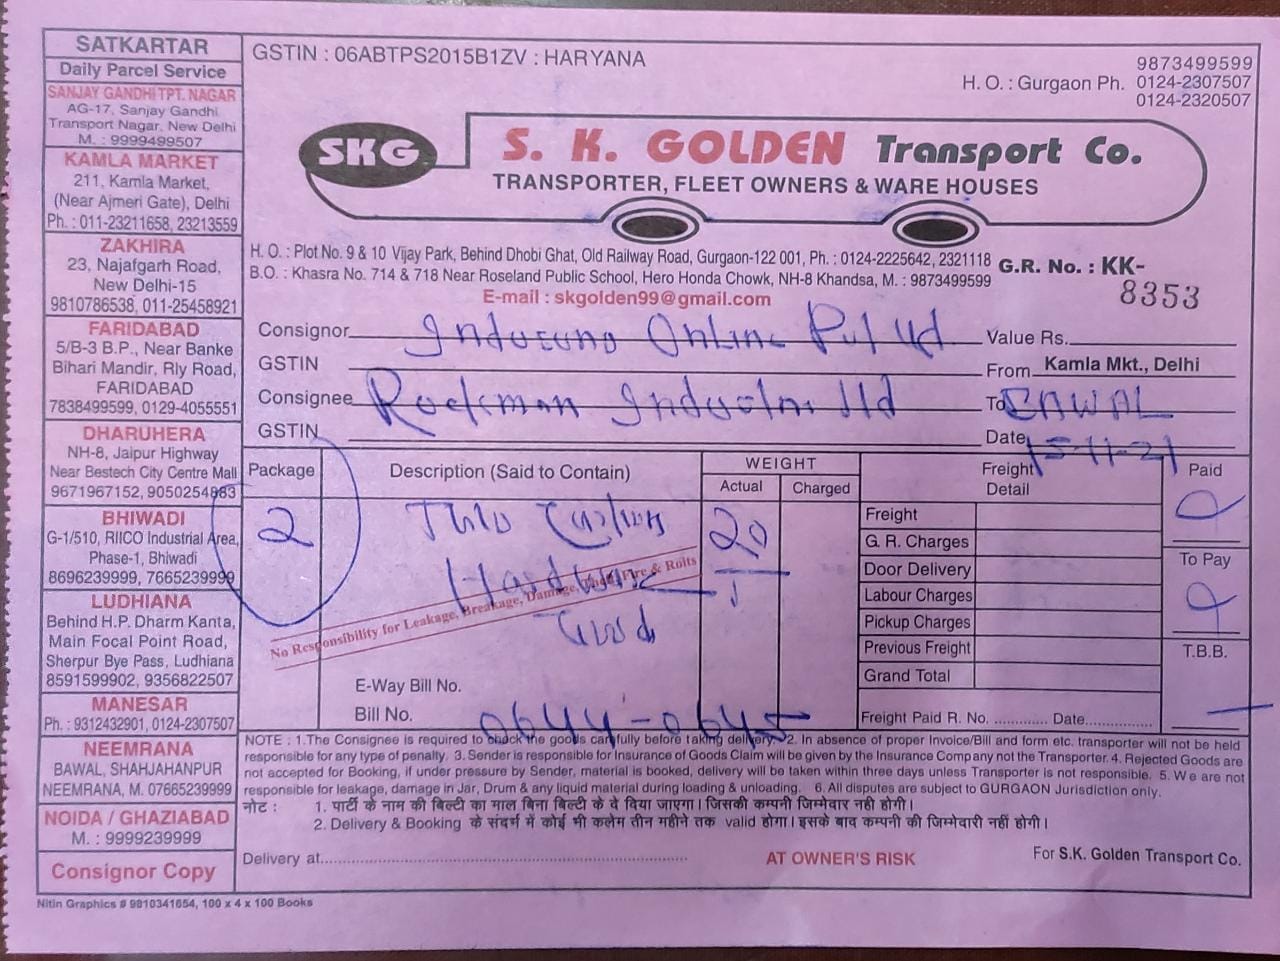 SATKARTAR
Daily Parcel Service
SANJAY GANDHI TPT. NAGAR
AG-17, Sanjay Gandhi
Transport Nagar, New Delhi
M. : 9999499507
KAMLA MARKET
211, Kamla Market,
(Near Ajmeri Gate), Delhi
Ph. : 011-23211658, 23213559
ZAKHIRA
23, Najafgarh Road,
New Delhi-15
9810786538, 011-25458921
FARIDABAD
5/B-3 B.P., Near Banke
Bihari Mandir, Rly Road,
FARIDABAD
7838499599, 0129-4055551
DHARUHERA
NH-8, Jaipur Highway
Near Bestech City Centre Mall
9671967152, 9050254883
BHIWADI
G-1/510, RIICO Industrial Area,
Phase-1, Bhiwadi
8696239999, 7665239999
LUDHIANA
Behind H.P. Dharm Kanta,
Main Focal Point Road,
Sherpur Bye Pass, Ludhiana
8591599902, 9356822507
MANESAR
Ph. : 9312432901, 0124-2307507
NEEMRANA
BAWAL, SHAHJAHANPUR
NEEMRANA, M. 07665239999
NOIDA / GHAZIABAD
M. : 9999239999
Consignor Copy
GSTIN : 06ABTPS2015B1ZV : HARYANA
9873499599
H. O. : Gurgaon Ph. 0124-2307507
0124-2320507
SKG
S. K. GOLDEN Transport Co.
TRANSPORTER, FLEET OWNERS & WARE HOUSES
H. O. : Plot No. 9 & 10 Vijay Park, Behind Dhobi Ghat, Old Railway Road, Gurgaon-122 001, Ph. : 0124-2225642, 2321118
B.O. : Khasra No. 714 & 718 Near Roseland Public School, Hero Honda Chowk, NH-8 Khandsa, M. : 9873499599
E-mail : skgolden99@gmail.com
G.R. No. : KK-
8353
Consignor Online Pvt Ltd
Value Rs.
GSTIN
From Kamla Mkt., Delhi
Consignee Rockman Ltd
To BAWAL
GSTIN
Date 15-11-21
Package
Description (Said to Contain)
WEIGHT
Actual
Charged
Freight Detail
Paid
2
Two
20
Hardware
No Responsibility for Leakage, Breakage, Damage, Theft, Fire & Roits
Freight
G. R. Charges
Door Delivery
Labour Charges
Pickup Charges
Previous Freight
Grand Total
To Pay
T.B.B.
E-Way Bill No.
Bill No. 0644-0645
Freight Paid R. No. ............. Date...............
NOTE : 1.The Consignee is required to check the goods carefully before taking delivery. 2. In absence of proper Invoice/Bill and form etc. transporter will not be held
responsible for any type of penalty. 3. Sender is responsible for Insurance of Goods Claim will be given by the Insurance Company not the Transporter. 4. Rejected Goods are
not accepted for Booking, if under pressure by Sender, material is booked, delivery will be taken within three days unless Transporter is not responsible. 5. We are not
responsible for leakage, damage in Jar, Drum & any liquid material during loading & unloading. 6. All disputes are subject to GURGAON Jurisdiction only.
नोट : 1. पार्टी के नाम की बिल्टी का माल बिना बिल्टी के दे दिया जाएगा। जिसकी कम्पनी जिम्मेदार नही होगी।
2. Delivery & Booking के संदर्भ में कोई भी कलेम तीन महीने तक valid होगा। इसके बाद कम्पनी की जिम्मेदारी नहीं होगी।
Delivery at....................................................
AT OWNER'S RISK
For S.K. Golden Transport Co.
Nitin Graphics # 9810341654, 100 x 4 x 100 Books